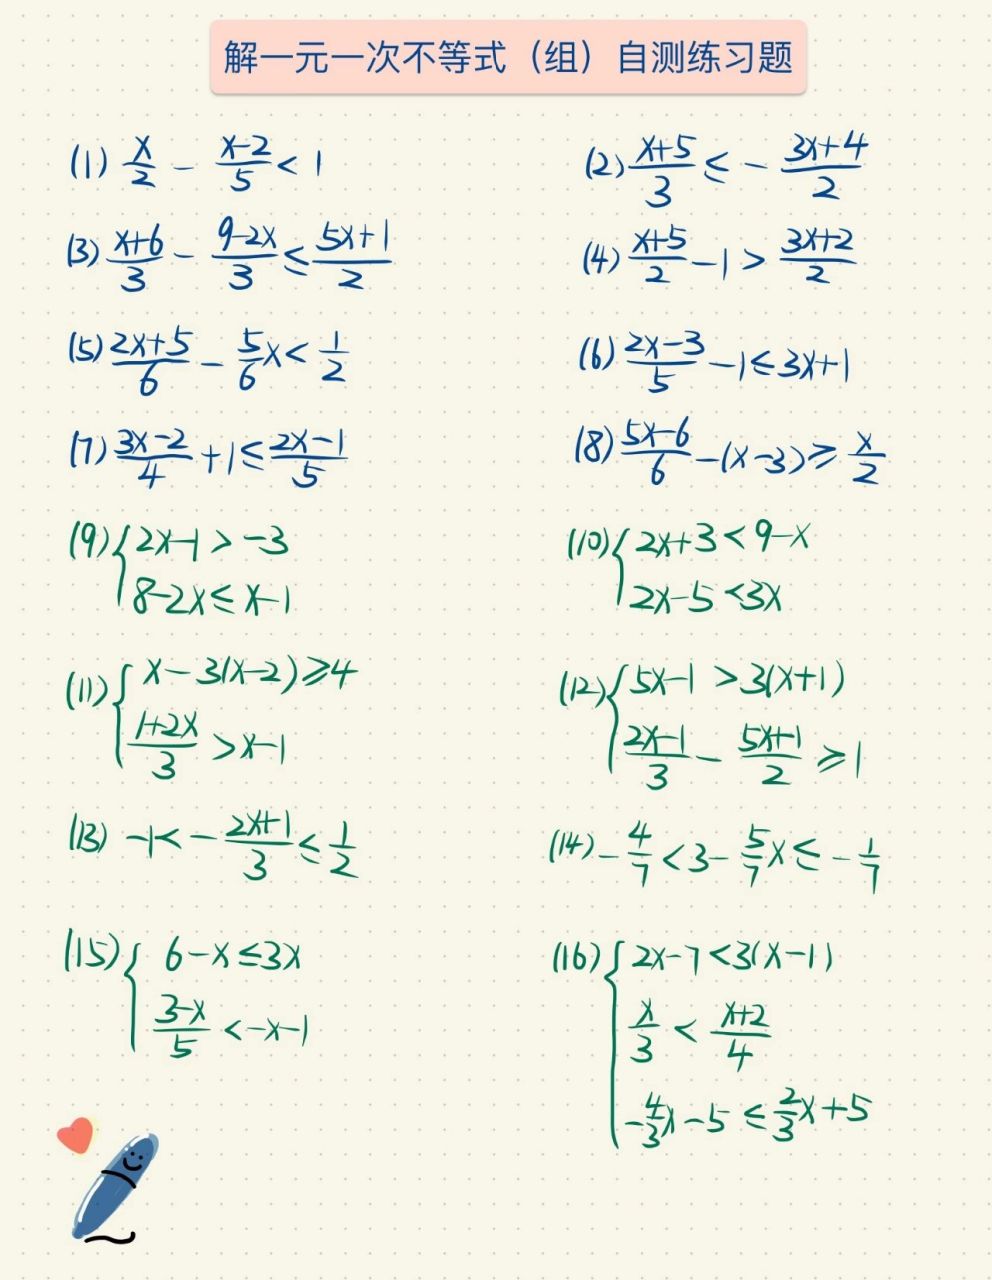 解一元一次不等式（组）自测练习题
(1) x/2 - (x-2)/5 < 1
(2) (x+5)/3 ≤ -(3x+4)/2
(3) (x+6)/3 - (9-2x)/3 ≤ (5x+1)/2
(4) (x+5)/2 - 1 > (3x+2)/2
(5) (2x+5)/6 - 5/6 x < 1/2
(6) (2x-3)/5 - 1 ≤ 3x+1
(7) (3x-2)/4 + 1 ≤ (2x-1)/5
(8) (5x-6)/6 - (x-3) ≥ x/2
(9) { 2x-1 > -3
8-2x ≤ x-1
(10) { 2x+3 < 9-x
2x-5 < 3x
(11) { x-3(x-2) ≥ 4
(1+2x)/3 > x-1
(12) { 5x-1 > 3(x+1)
(2x-1)/3 - (5x+1)/2 ≥ 1
(13) -1 < -(2x+1)/3 ≤ 1/2
(14) -4/7 < 3 - 5/7 x ≤ -1/7
(15) { 6-x ≤ 3x
(3-x)/5 < -x-1
(16) { 2x-7 < 3(x-1)
x/3 < (x+2)/4
-4/3 x - 5 ≤ 2/3 x + 5